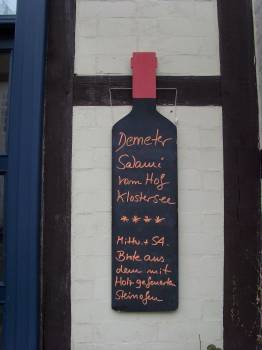 Demeter
Salami
vom Hof
Klostersee
****
Mittw. + SA.
Brote aus
dem mit
Holz gefeuerten
Steinofen